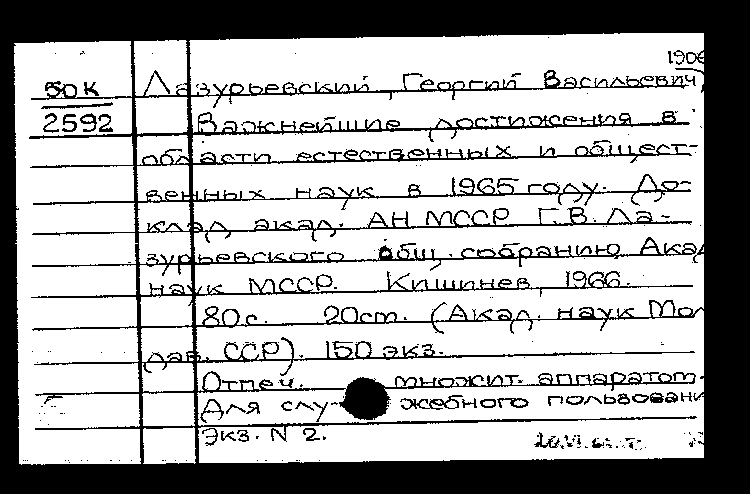 1906
50К Лазурьевский, Георгий Васильевич,
2592 Важнейшие достижения в
области естественных и общест-
венных наук в 1965 году. До-
клад акад. АН МССР Г.В. Ла-
зурьевского общ. собранию Акад
наук МССР. Кишинев, 1966.
80с. 20ст. (Акад. наук Мол
дав. ССР). 150 экз.
Отпеч. множит. аппаратом.
Для слу- жебного пользовани
Экз. N 2.